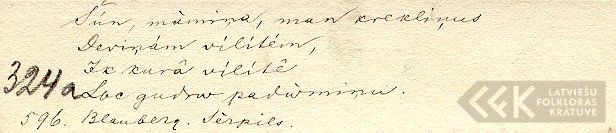 Šūn, māmiņa, man krekliņus
Deviņám vílítém,
Ik kurâ vílítê
324a Loc gudrw padwmiņu.
596. Blauberg. Sērpils.
LATVIEŠU
FOLKLORAS
KRĀTUVE